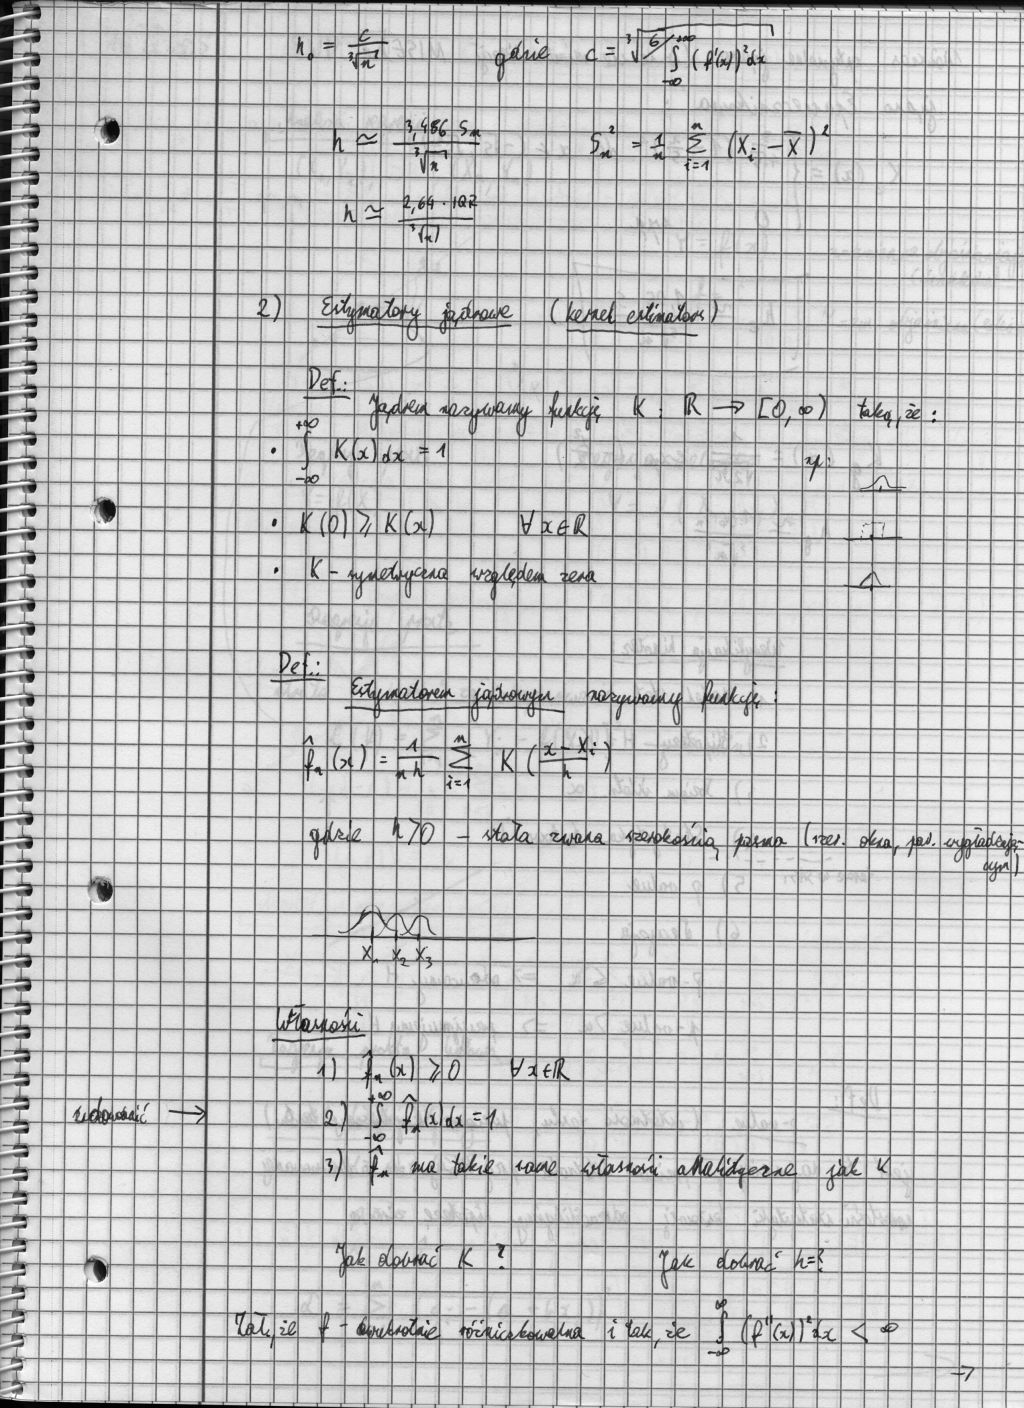 h₀ = c / ∛n gdzie c = ∛(6 / ∫_{-∞}^{+∞} (f'(x))² dx)
h ≃ 3,486 Sₙ / ∛n Sₙ² = 1/n Σ_{i=1}^{n} (Xᵢ - X̄)²
h ≃ 2,64 · IQR / ∛n
2) Estymatory jądrowe (kernel estimators)
Def.:
Jądrem nazywamy funkcję K : ℝ → [0, ∞) taką, że :
• ∫_{-∞}^{+∞} K(x) dx = 1 np:
• K(0) ≥ K(x) ∀ x ∈ ℝ
• K - symetryczna względem zera
Def.:
Estymatorem jądrowym nazywamy funkcję :
f̂ₙ(x) = 1/(nh) Σ_{i=1}^{n} K((x - Xᵢ)/h)
gdzie h > 0 - stała zwana szerokością pasma (szer. okna, par. wygładzają-
cym)
X₁ X₂ X₃
Własności
1) f̂ₙ(x) ≥ 0 ∀ x ∈ ℝ
udowodnić → 2) ∫_{-∞}^{+∞} f̂ₙ(x) dx = 1
3) f̂ₙ ma takie same własności analityczne jak K
Jak dobrać K ? Jak dobrać h=?
Zał, że f - dwukrotnie różniczkowalna i tak, że ∫_{-∞}^{∞} (f''(x))² dx < ∞
→